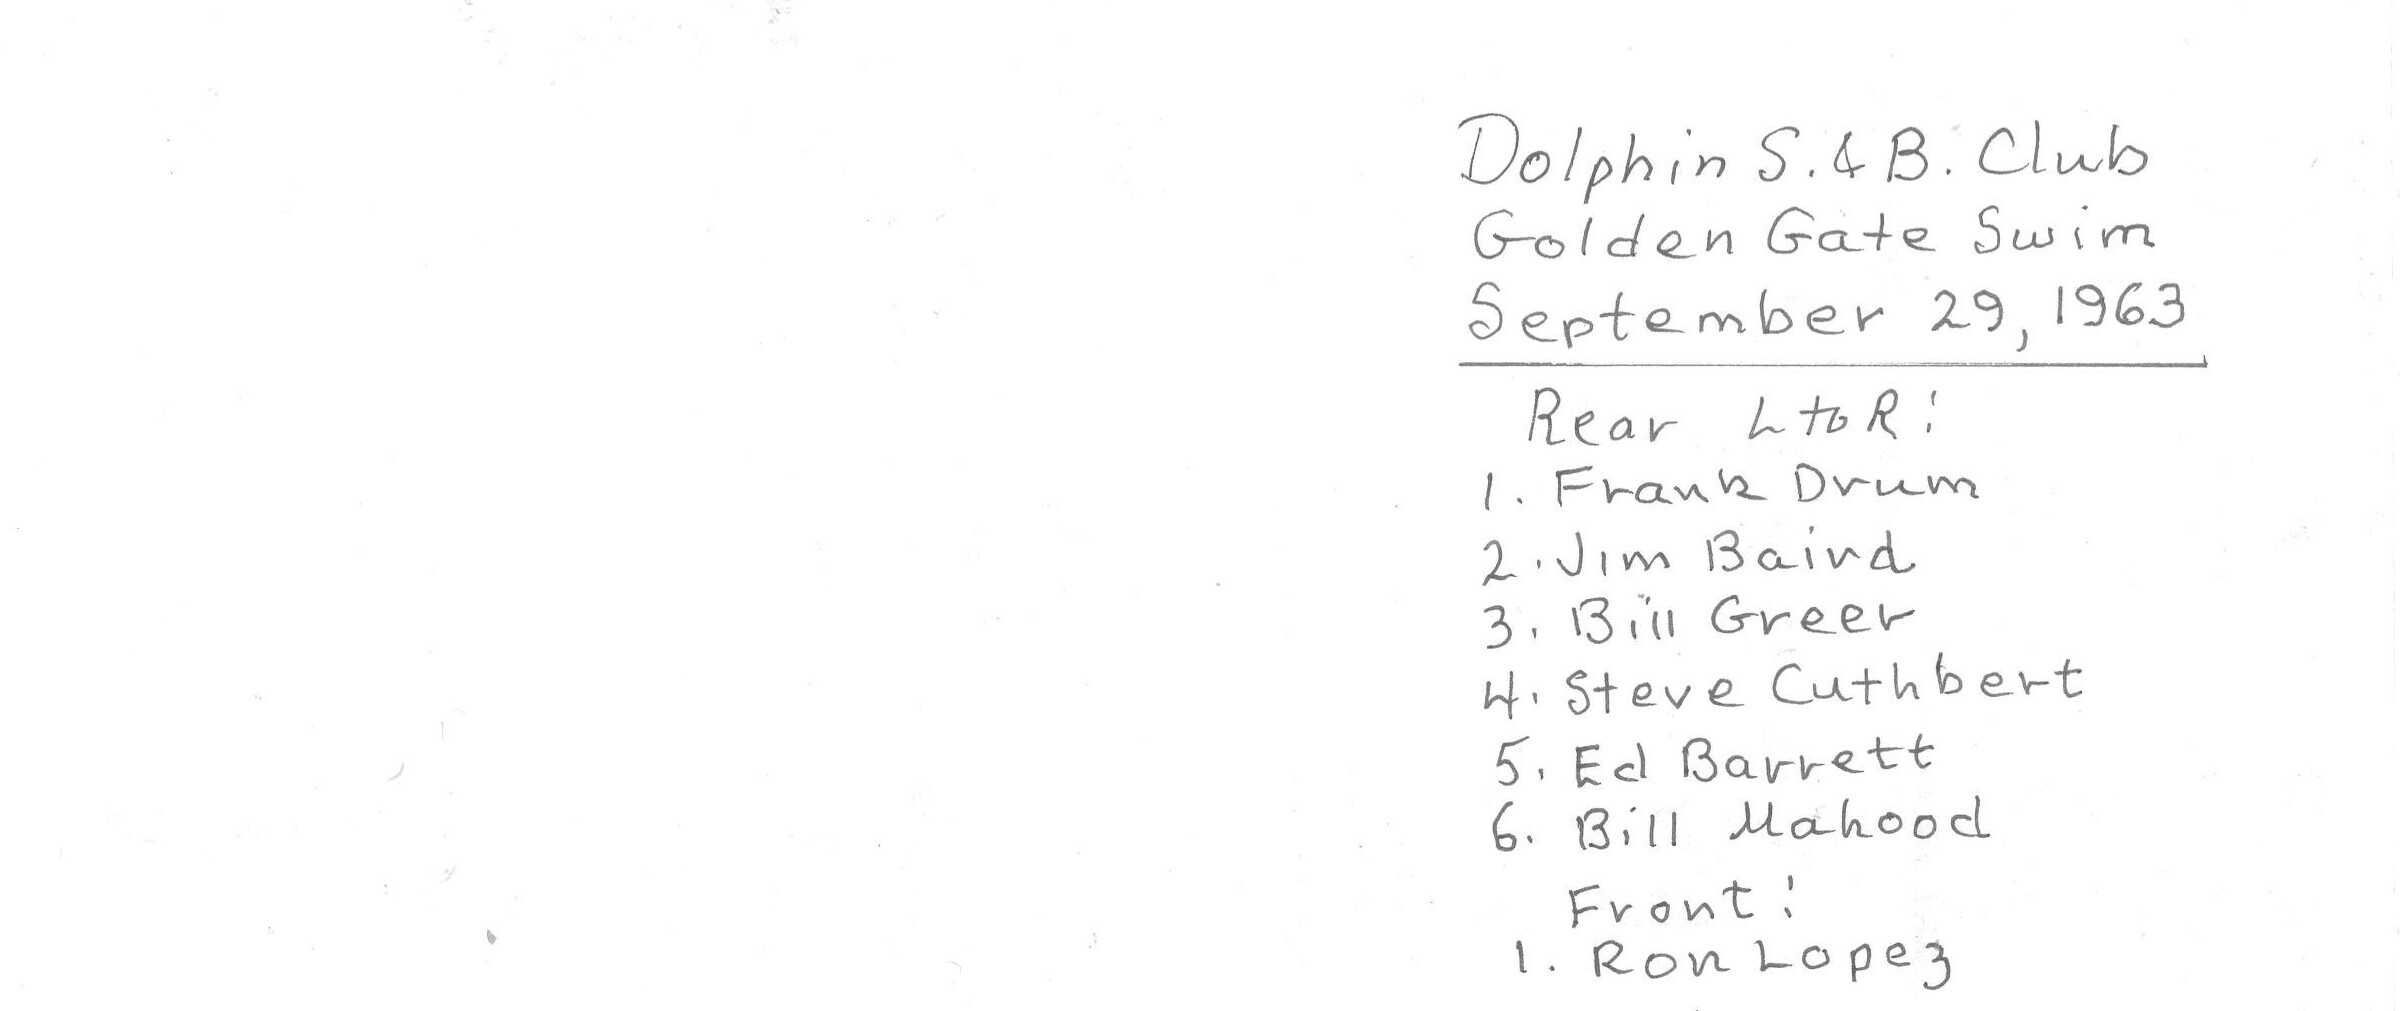 Dolphin S. & B. Club
Golden Gate Swim
September 29, 1963
Rear L to R:
1. Frank Drum
2. Jim Baird
3. Bill Greer
4. Steve Cuthbert
5. Ed Barrett
6. Bill Mahood
Front:
1. Ron Lopez